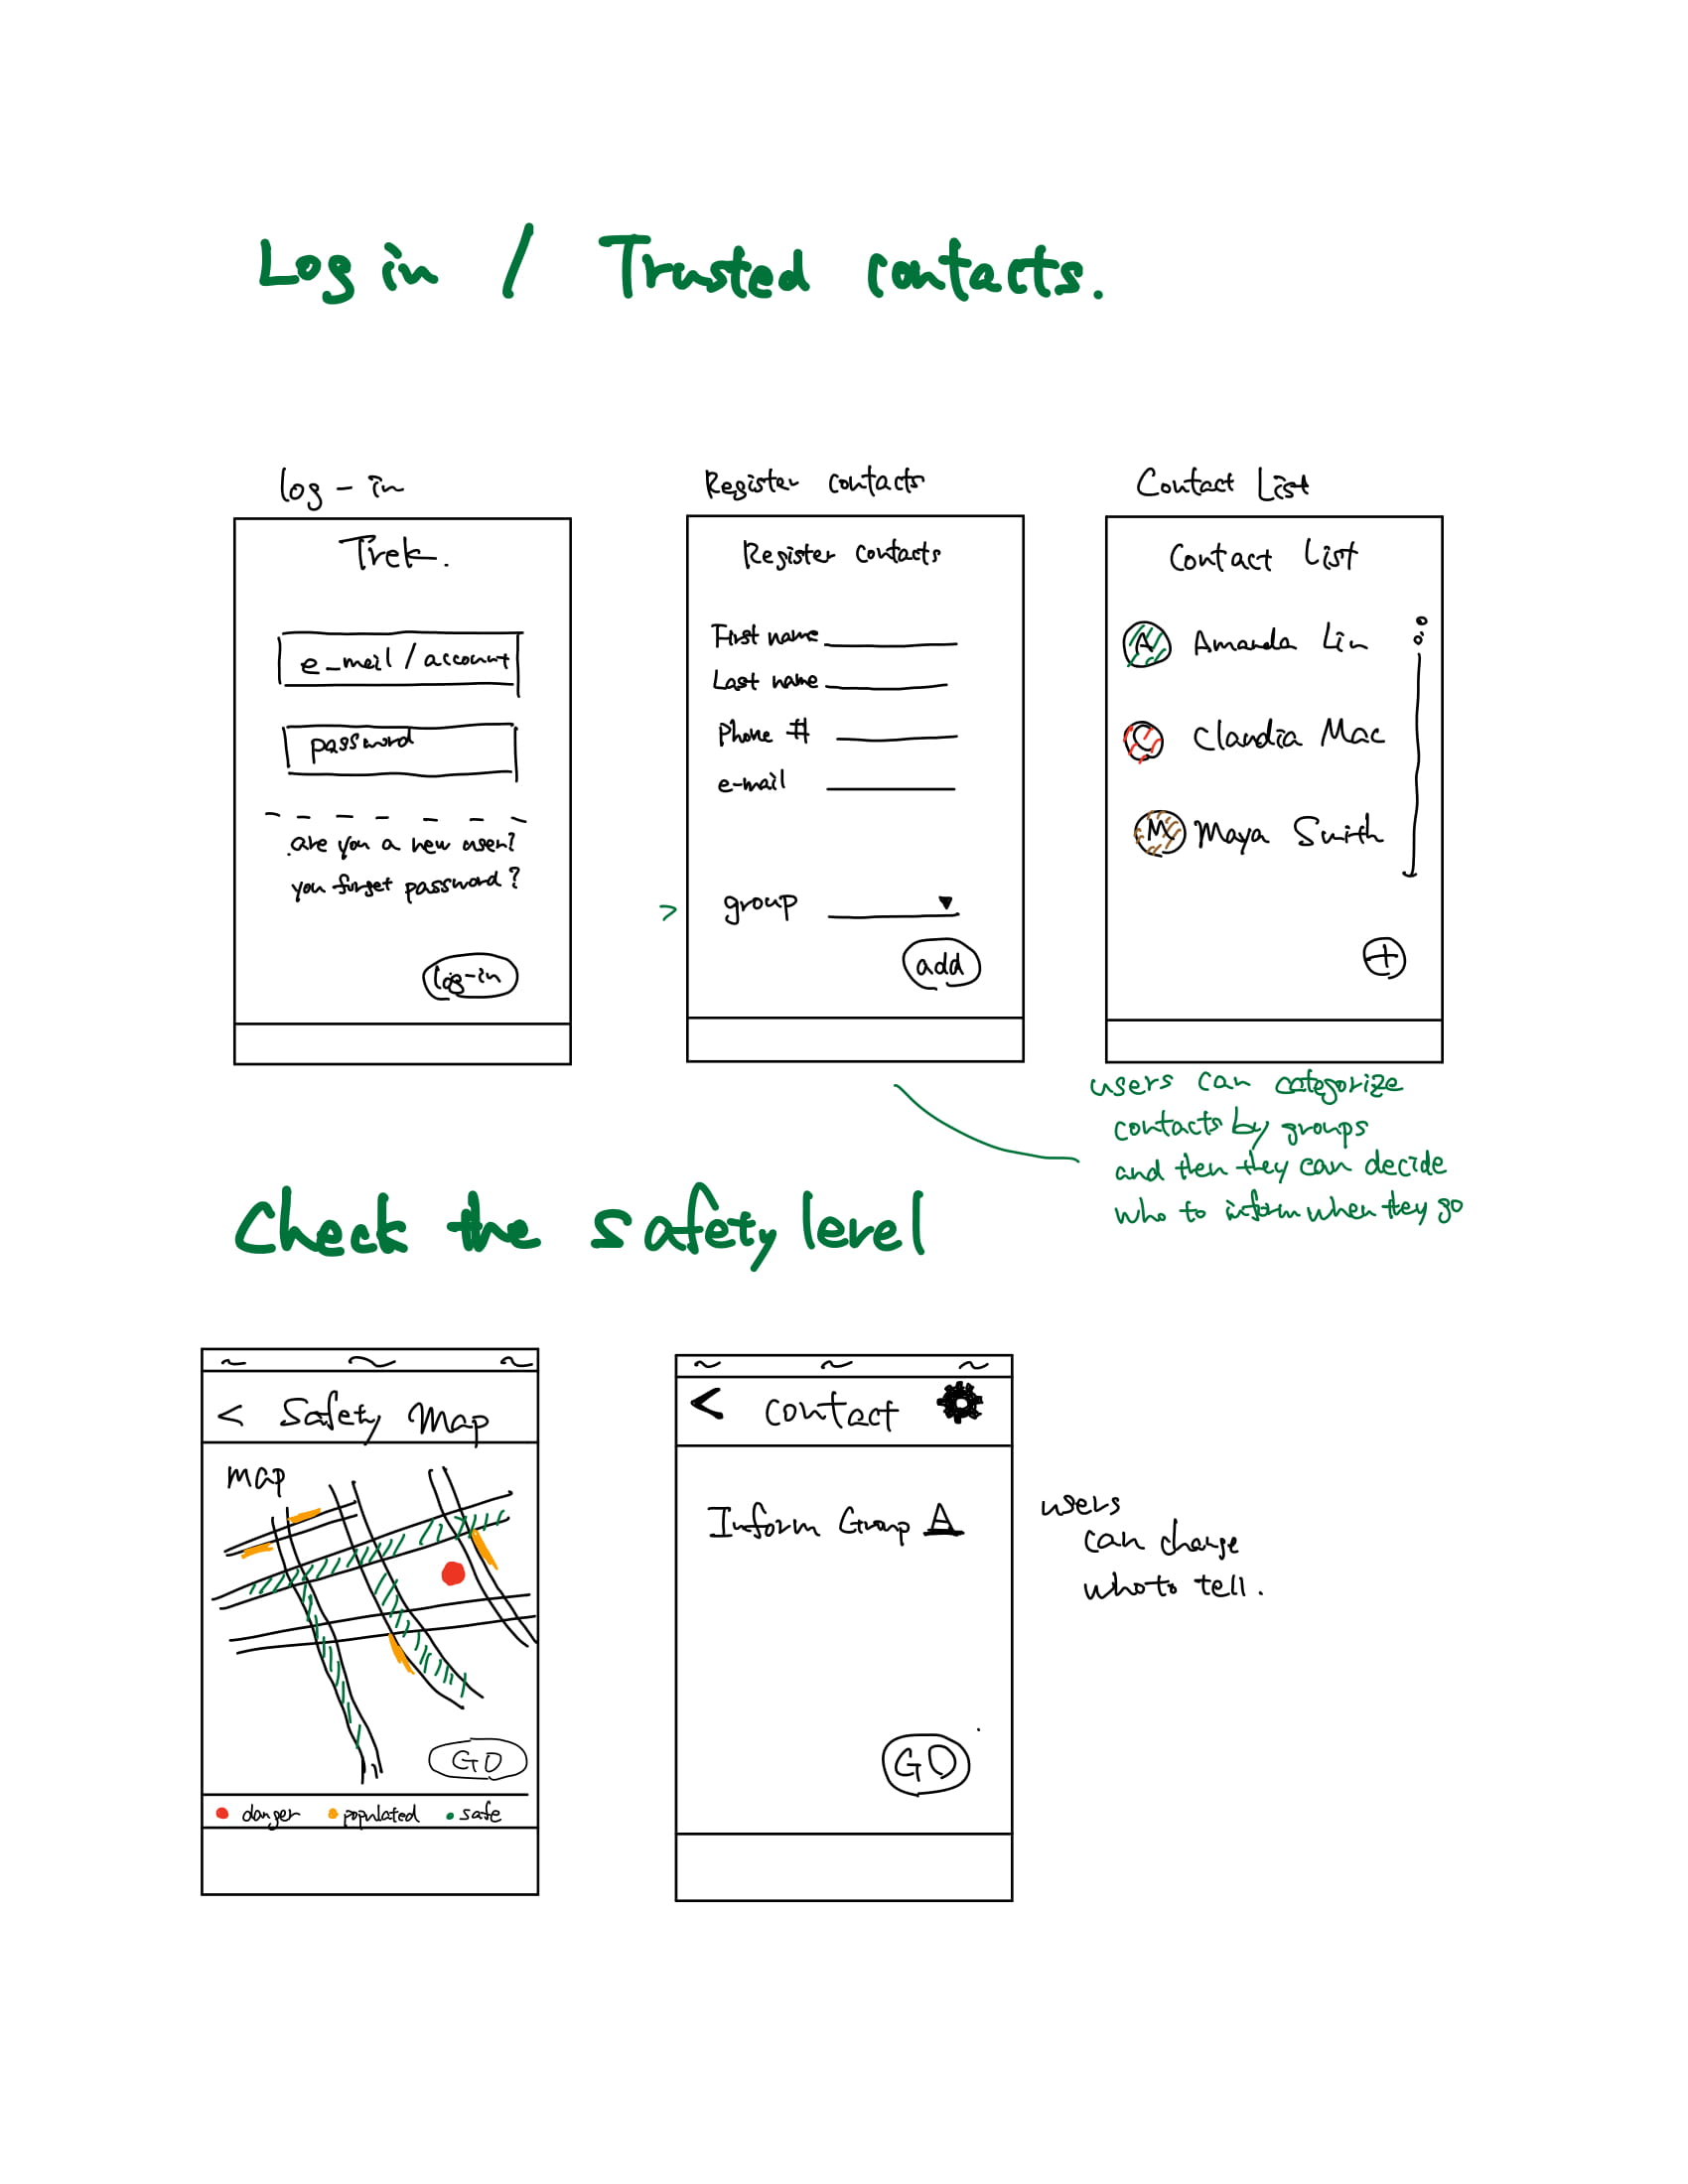 Log in / Trusted contacts.
log-in
Trek.
e-mail / account
password
are you a new user?
you forget password?
log-in
Register contacts
Register contacts
First name
Last name
Phone #
e-mail
group
add
Contact List
Contact List
A Amanda Lin
C Claudia Mac
M Maya Smith
+
users can categorize
contacts by groups
and then they can decide
who to inform when they go
Check the safety level
< Safety Map
map
GO
danger populated safe
< contact
Inform Group A
GO
users
can change
who to tell.